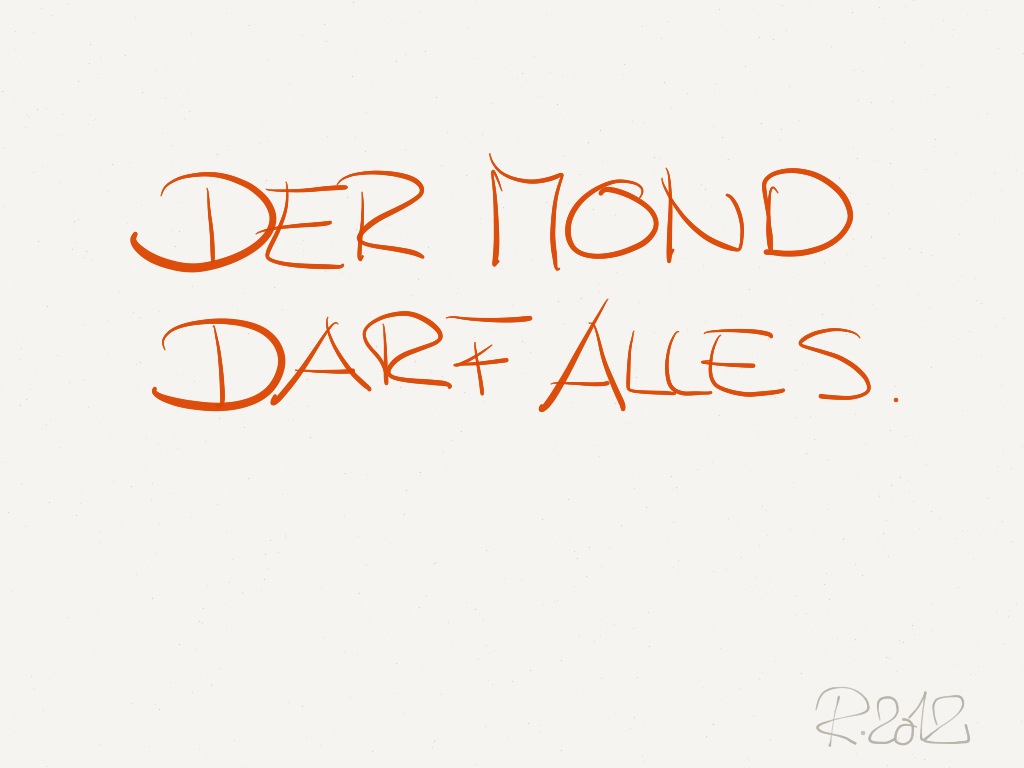 DER MOND
DARF ALLES.
R.2012